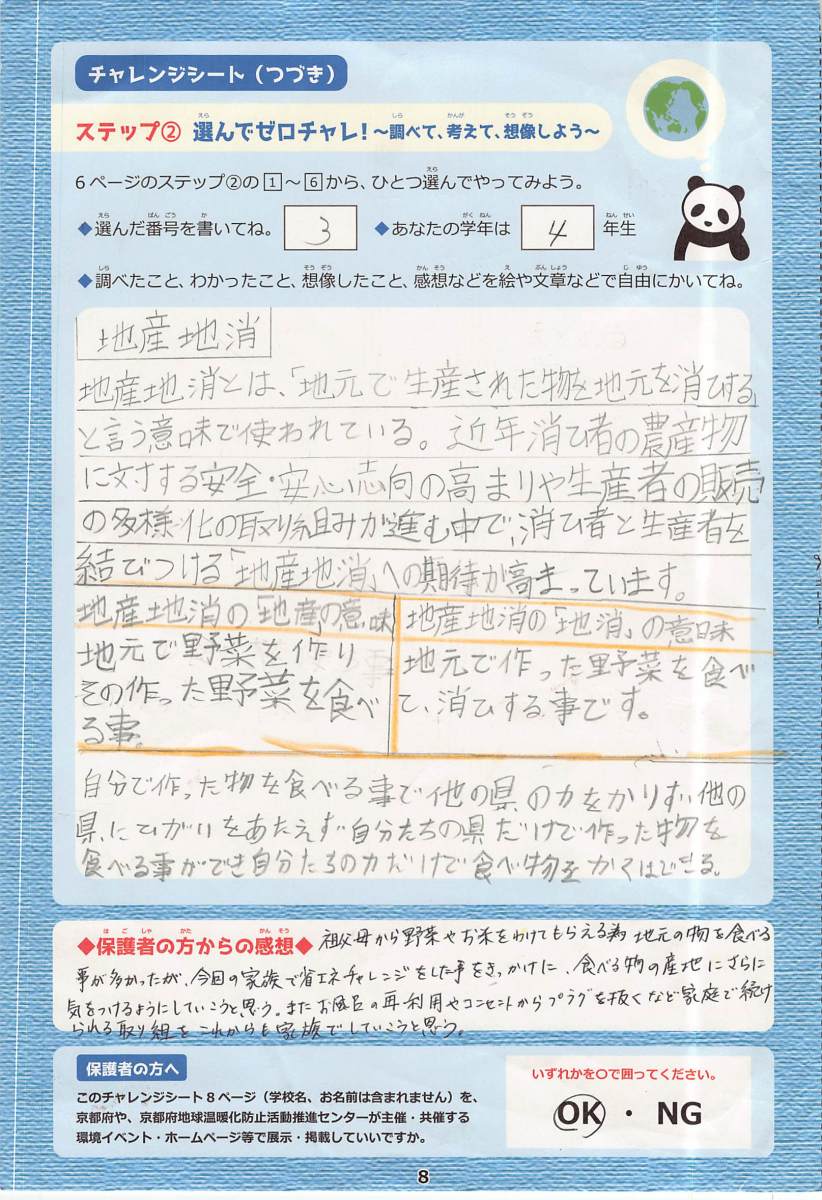 チャレンジシート(つづき)
ステップ② 選んでゼロチャレ!~調べて、考えて、想像しよう~
6ページのステップ②の1~6から、ひとつ選んでやってみよう。
◆選んだ番号を書いてね。 3 ◆あなたの学年は 4 年生
◆調べたこと、わかったこと、想像したこと、感想などを絵や文章などで自由にかいてね。
地産地消
地産地消とは、「地元で生産された物を地元を消ひする」
と言う意味で使われている。近年消ひ者の農産物
に対する安全・安心志向の高まりや生産者の販売
の多様化の取り組みが進む中で、消ひ者と生産者を
結びつける「地産地消」への期待が高まっています。
地産地消の「地産」の意味
地元で野菜を作り
その作った野菜を食べ
る事。
地産地消の「地消」の意味
地元で作った野菜を食べ
て、消ひする事です。
自分で作った物を食べる事で他の県の力をかりず、他の
県にひがいをあたえず自分たちの県だけで作った物を
食べる事ができ自分たちの力だけで食べ物をかくほできる。
◆保護者の方からの感想◆ 祖父母から野菜やお米をわけてもらえる為 地元の物を食べる
事が多かったが、今回の家族で省エネチャレンジをした事をきっかけに、食べる物の産地にさらに
気をつけるようにしていこうと思う。またお風呂の再利用やコンセントからプラグを抜くなど家庭で続け
られる取り組をこれからも家族でしていこうと思う。
保護者の方へ
このチャレンジシート8ページ(学校名、お名前は含まれません)を、
京都府や、京都府地球温暖化防止活動推進センターが主催・共催する
環境イベント・ホームページ等で展示・掲載していいですか。
いずれかを〇で囲ってください。
OK ・ NG
8